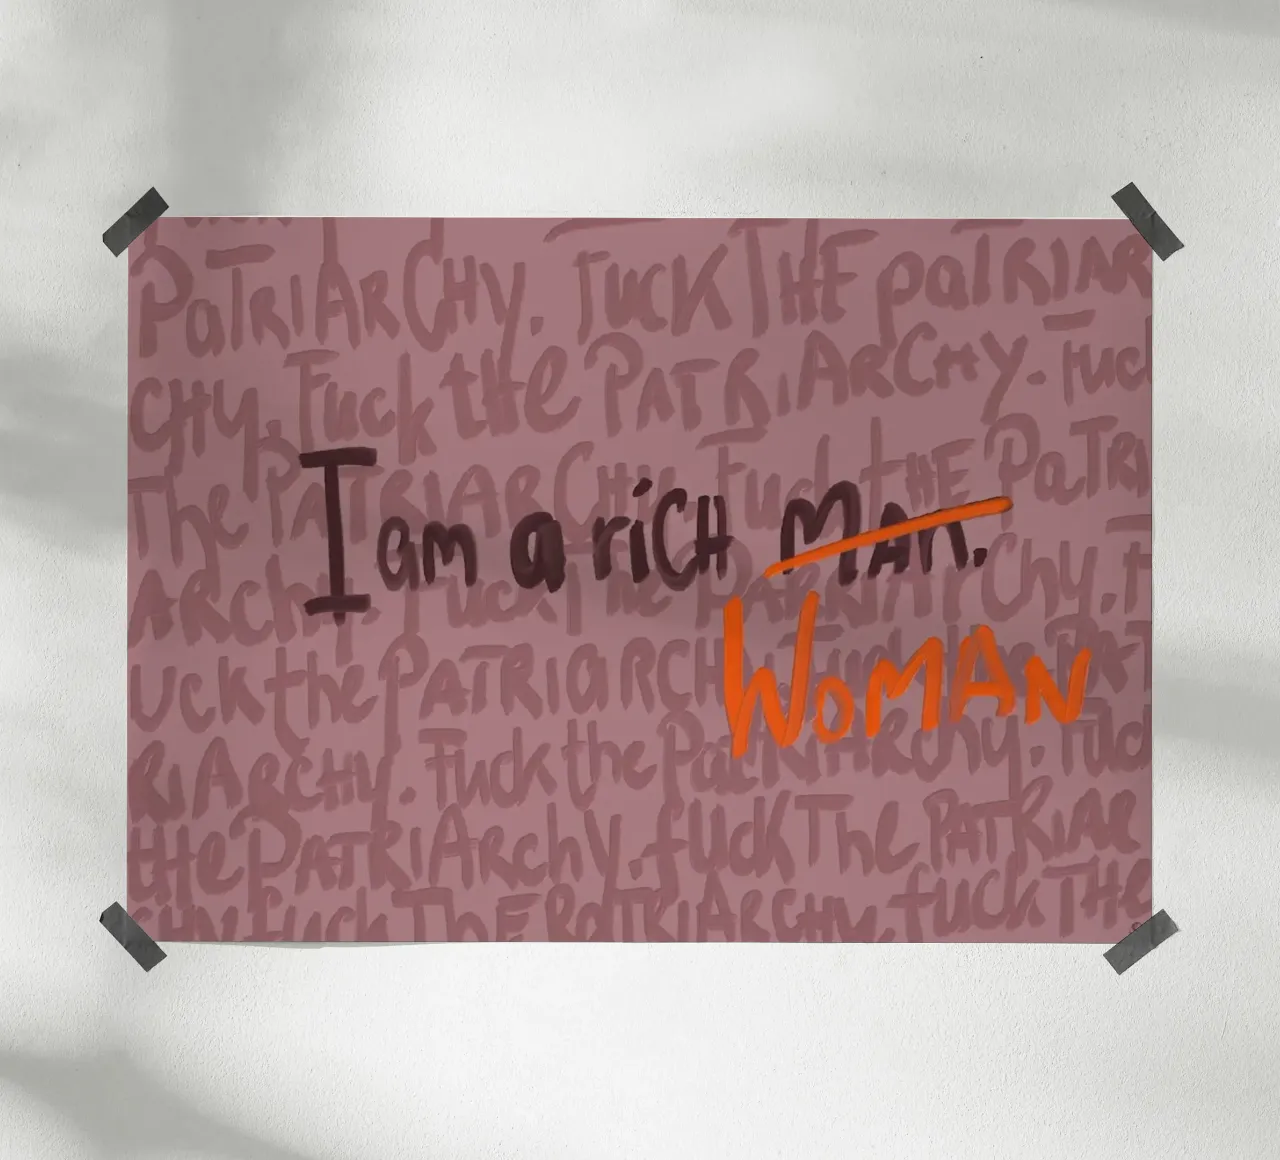 PaTRiARCHy. FUCK THE paTRiAR
CHy. Fuck the PATRiARCHY. Fuc
The PATRiARCHY. Fuck tHE PaTRi
I am a riCH MAn.
ARCHy. FuckThe PATRiArChy. F
WoMAN
UCK the PATRiaRCHy. Fuck the PAT
RiARCHy. Fuck the PatRiARchy. Fuc
tHe PATRiArchy. fUCK The PATRiAR
CHY. Fuck ThE PaTRiARCHy. fuck THe